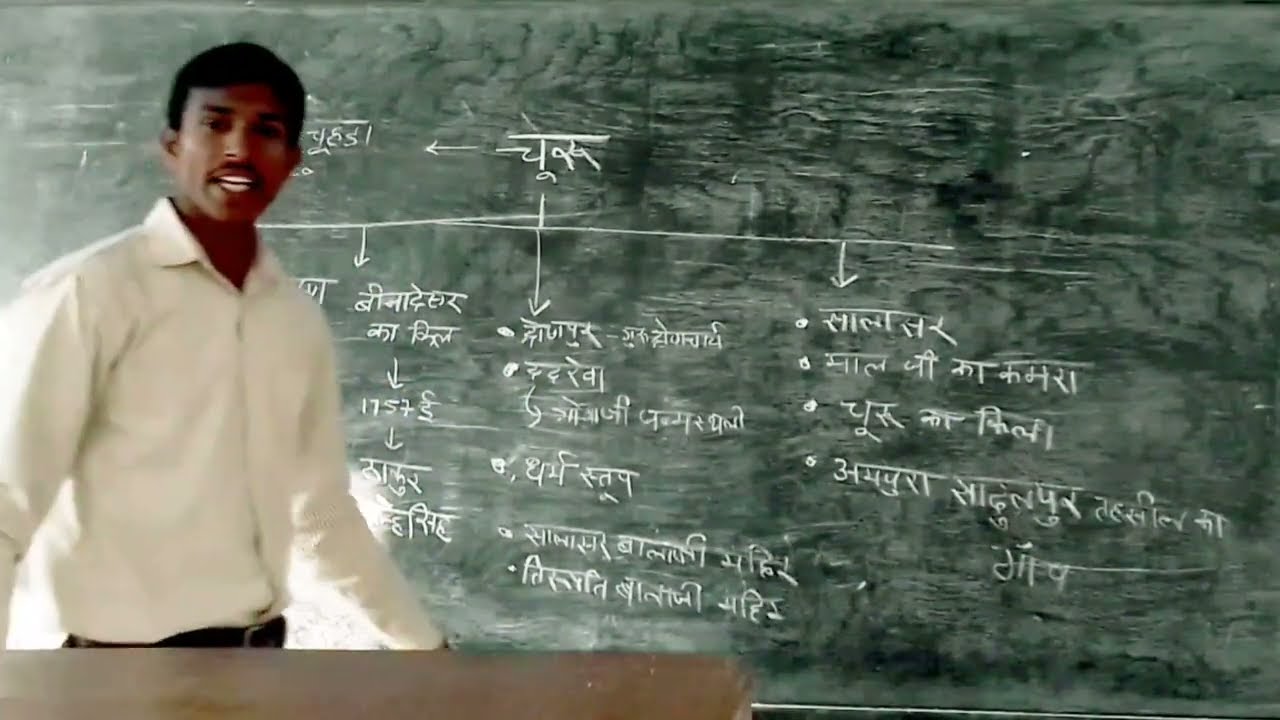 चूहडा ← चूरू
बीनादेसर
का किला
1757 ई
ठाकुर
सिंह
• द्रोणपुर - गुरु द्रोणाचार्य
• ददरेवा
गोगाजी जन्मस्थली
• धर्म स्तूप
• सालासर बालाजी मंदिर
• तिरूपति बालाजी मंदिर
• सालासर
• माल जी का कमरा
• चूरू का किला
• अमपुरा सादुलपुर तहसील का
गाँव